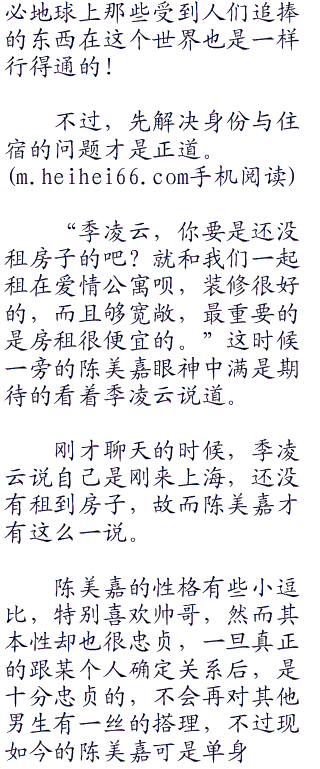 必地球上那些受到人们追捧
的东西在这个世界也是一样
行得通的！
不过，先解决身份与住
宿的问题才是正道。
(m.heihei66.com手机阅读)
“季凌云，你要是还没
租房子的吧？就和我们一起
租在爱情公寓呗，装修很好
的，而且够宽敞，最重要的
是房租很便宜的。”这时候
一旁的陈美嘉眼神中满是期
待的看着季凌云说道。
刚才聊天的时候，季凌
云说自己是刚来上海，还没
有租到房子，故而陈美嘉才
有这么一说。
陈美嘉的性格有些小逗
比，特别喜欢帅哥，然而其
本性却也很忠贞，一旦真正
的跟某个人确定关系后，是
十分忠贞的，不会再对其他
男生有一丝的搭理，不过现
如今的陈美嘉可是单身